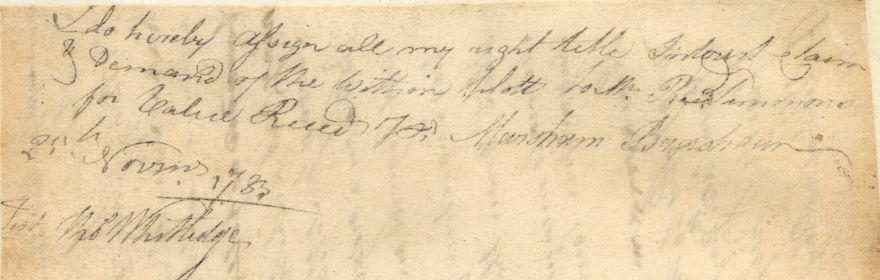 I do hereby assign all my right title Intrust Claim
& Demand of the within plott to Mr. Simmons
for Value Recd
Marsham
25th Novmr 1783
Test Thos Whitledge